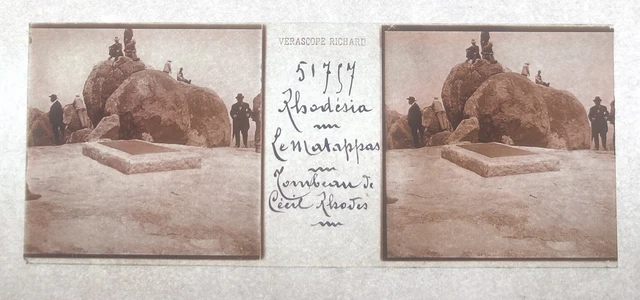 VERASCOPE RICHARD
51757
Rhodésia
Le Matappas
Tombeau de
Cécil Rhodes